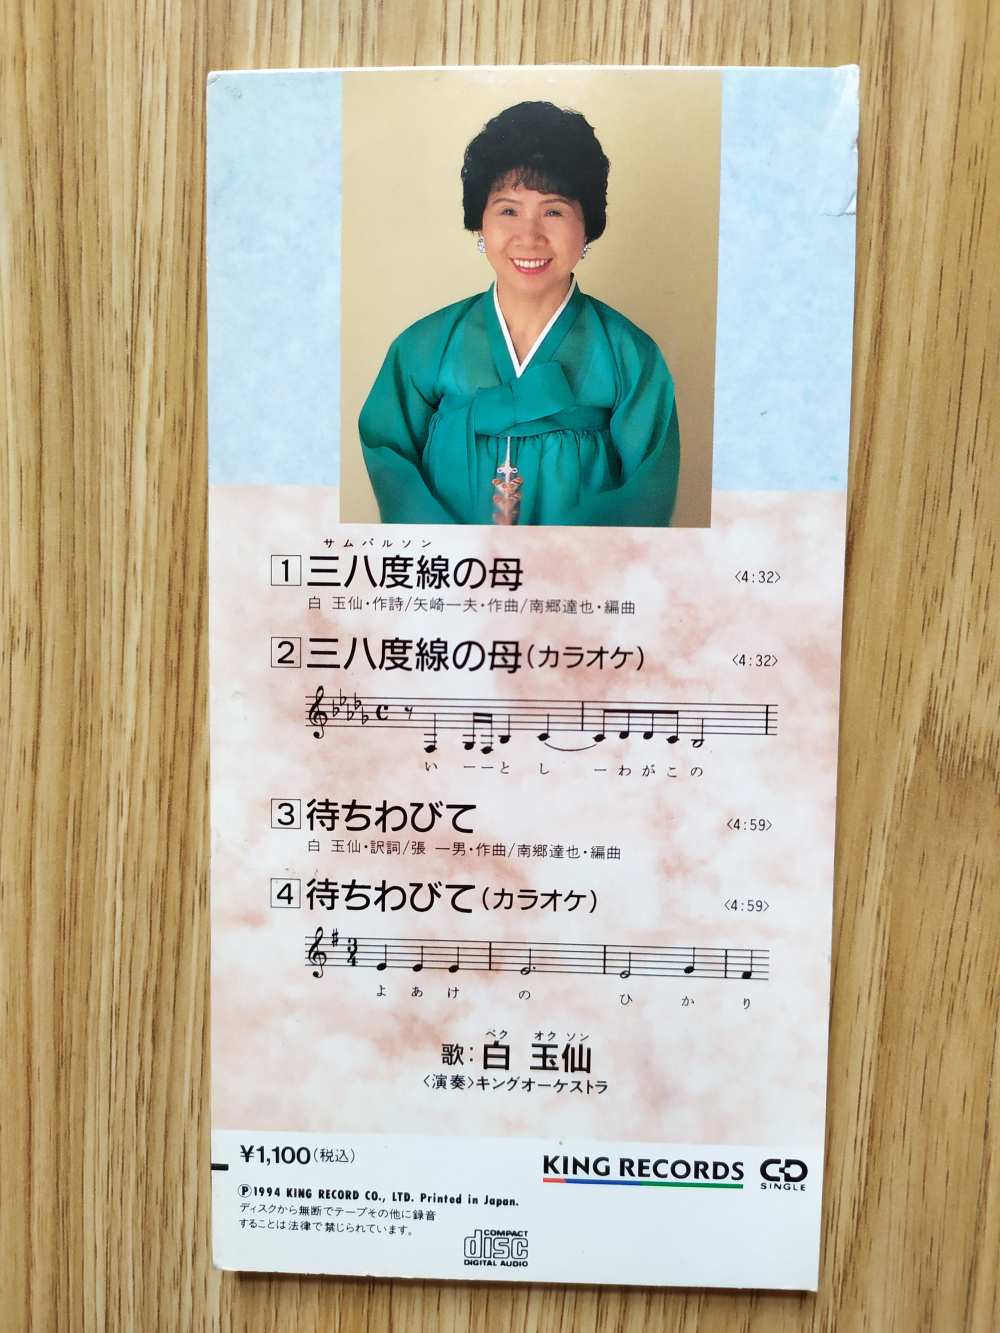 サムパルソン
1 三八度線の母 〈4:32〉
白 玉仙・作詩/矢崎一夫・作曲/南郷達也・編曲
2 三八度線の母(カラオケ) 〈4:32〉
い ーーと し ーわがこの
3 待ちわびて 〈4:59〉
白 玉仙・訳詞/張 一男・作曲/南郷達也・編曲
4 待ちわびて(カラオケ) 〈4:59〉
3
4
よ あ け の ひ か り
ペク オク ソン
歌:白 玉仙
〈演奏〉キングオーケストラ
¥1,100(税込)
KING RECORDS CD
SINGLE
Ⓟ1994 KING RECORD CO., LTD. Printed in Japan.
ディスクから無断でテープその他に録音
することは法律で禁じられています。
COMPACT
disc
DIGITAL AUDIO